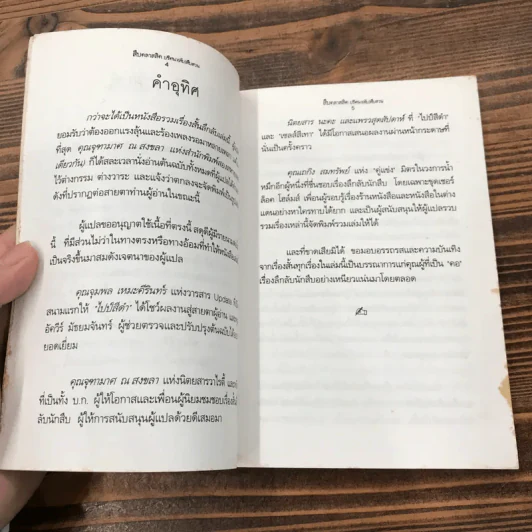 สืบคลาสสิค ปริศนาลับสืบสวน
4
คำอุทิศ
กว่าจะได้เป็นหนังสือรวมเรื่องสั้นลึกลับเล่มนี้
ยอมรับว่าต้องออกแรงลุ้นและร้องเพลงรอมาหลายเพลง
ที่สุด คุณจุฑามาศ ณ สงขลา แห่งสำนักพิมพ์
เดียวกัน) ก็ได้สละเวลานั่งอ่านต้นฉบับทั้งหมดที่ผู้แปล
ไว้ต่างกรรม ต่างวาระ และแจ้งว่าตกลงจะจัดพิมพ์เป็น
ดังที่ปรากฏต่อสายตาท่านผู้อ่านในขณะนี้
ผู้แปลขออนุญาตใช้เนื้อที่ตรงนี้ สดุดีผู้มี
นี้ ที่มีส่วนไม่ว่าในทางตรงหรือทางอ้อมที่ทำให้หนังสือ
เป็นจริงขึ้นมาสมดังเจตนาของผู้แปล
คุณจุมพล เหมะคีรินทร์ แห่งวารสาร Update
สนามแรกให้ "ไปป์สีดำ" ได้โชว์ผลงานสู่สายตาผู้อ่าน
อัควีร์ มัธยมจันทร์ ผู้ช่วยตรวจและปรับปรุงต้นฉบับ
ยอดเยี่ยม
คุณจุฑามาศ ณ สงขลา แห่งนิตยสารวาไรตี้
ที่เป็นทั้ง บ.ก. ผู้ให้โอกาสและเพื่อนผู้นิยมชมชอบเรื่อง
ลับนักสืบ ผู้ให้การสนับสนุนผู้แปลด้วยดีเสมอมา
สืบคลาสสิค ปริศนาลับสืบสวน
5
นิตยสาร นะคะ และแพรวสุดสัปดาห์ ที่ "ไปป์สีดำ"
และ "เชลล์สีเทา" ได้มีโอกาสเสนอผลงานผ่านหน้ากระดาษที่
นั่นเป็นครั้งคราว
คุณเถกิง สมทรัพย์ แห่ง "คู่แข่ง" มิตรในวงการน้ำ
หมึกอีกผู้หนึ่งที่ชื่นชอบเรื่องลึกลับนักสืบ โดยเฉพาะชุดเชอร์
ล็อค โฮล์มส์ เพื่อนผู้รอบรู้เรื่องร้านหนังสือและหนังสือในต่าง
แดนอย่างหาใครทาบได้ยาก และเป็นผู้สนับสนุนให้ผู้แปลรวบ
รวมเรื่องเหล่านี้จัดพิมพ์รวมเล่มให้ได้
และที่ขาดเสียมิได้ ขอมอบอรรถรสและความบันเทิง
จากเรื่องสั้นทุกเรื่องในเล่มนี้เป็นบรรณาการแก่คุณผู้ที่เป็น "คอ"
เรื่องลึกลับนักสืบอย่างเหนียวแน่นมาโดยตลอด